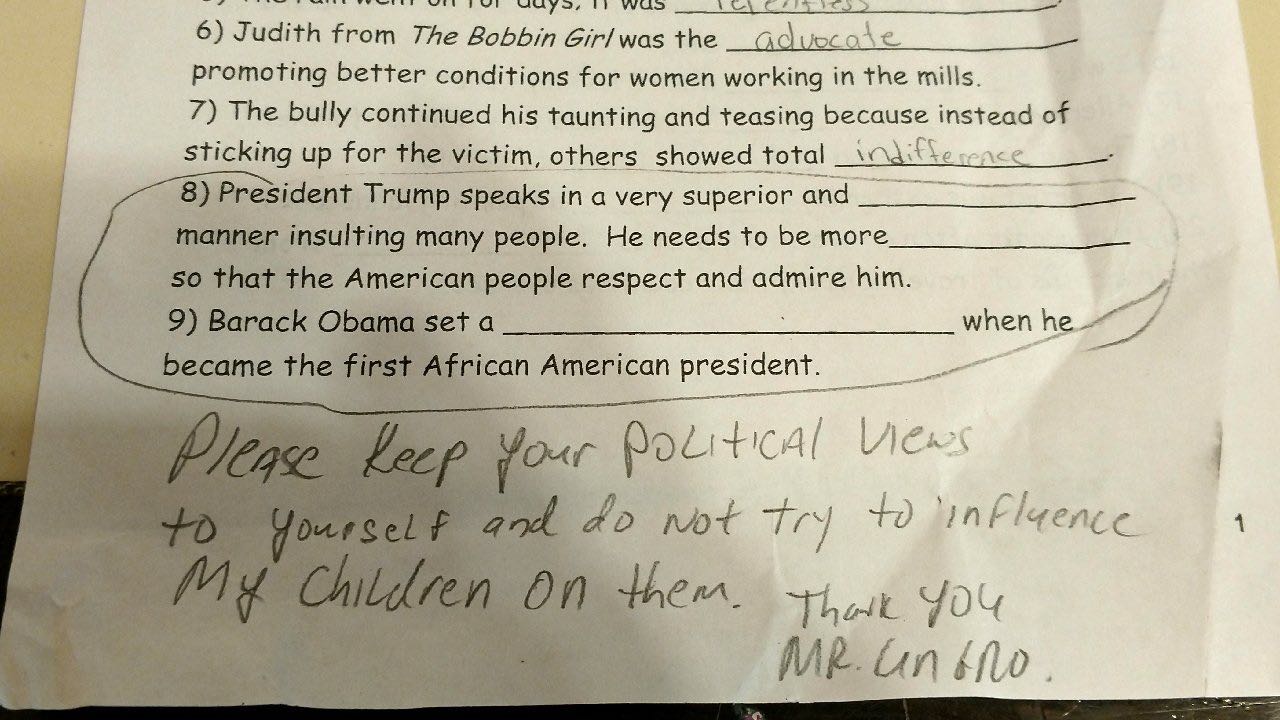 5) The rain went on for days. It was relentless.
6) Judith from The Bobbin Girl was the advocate
promoting better conditions for women working in the mills.
7) The bully continued his taunting and teasing because instead of
sticking up for the victim, others showed total indifference.
8) President Trump speaks in a very superior and
manner insulting many people. He needs to be more
so that the American people respect and admire him.
9) Barack Obama set a when he
became the first African American president.
Please keep your political views
to yourself and do not try to influence
My children on them.
Thank you
MR.
1